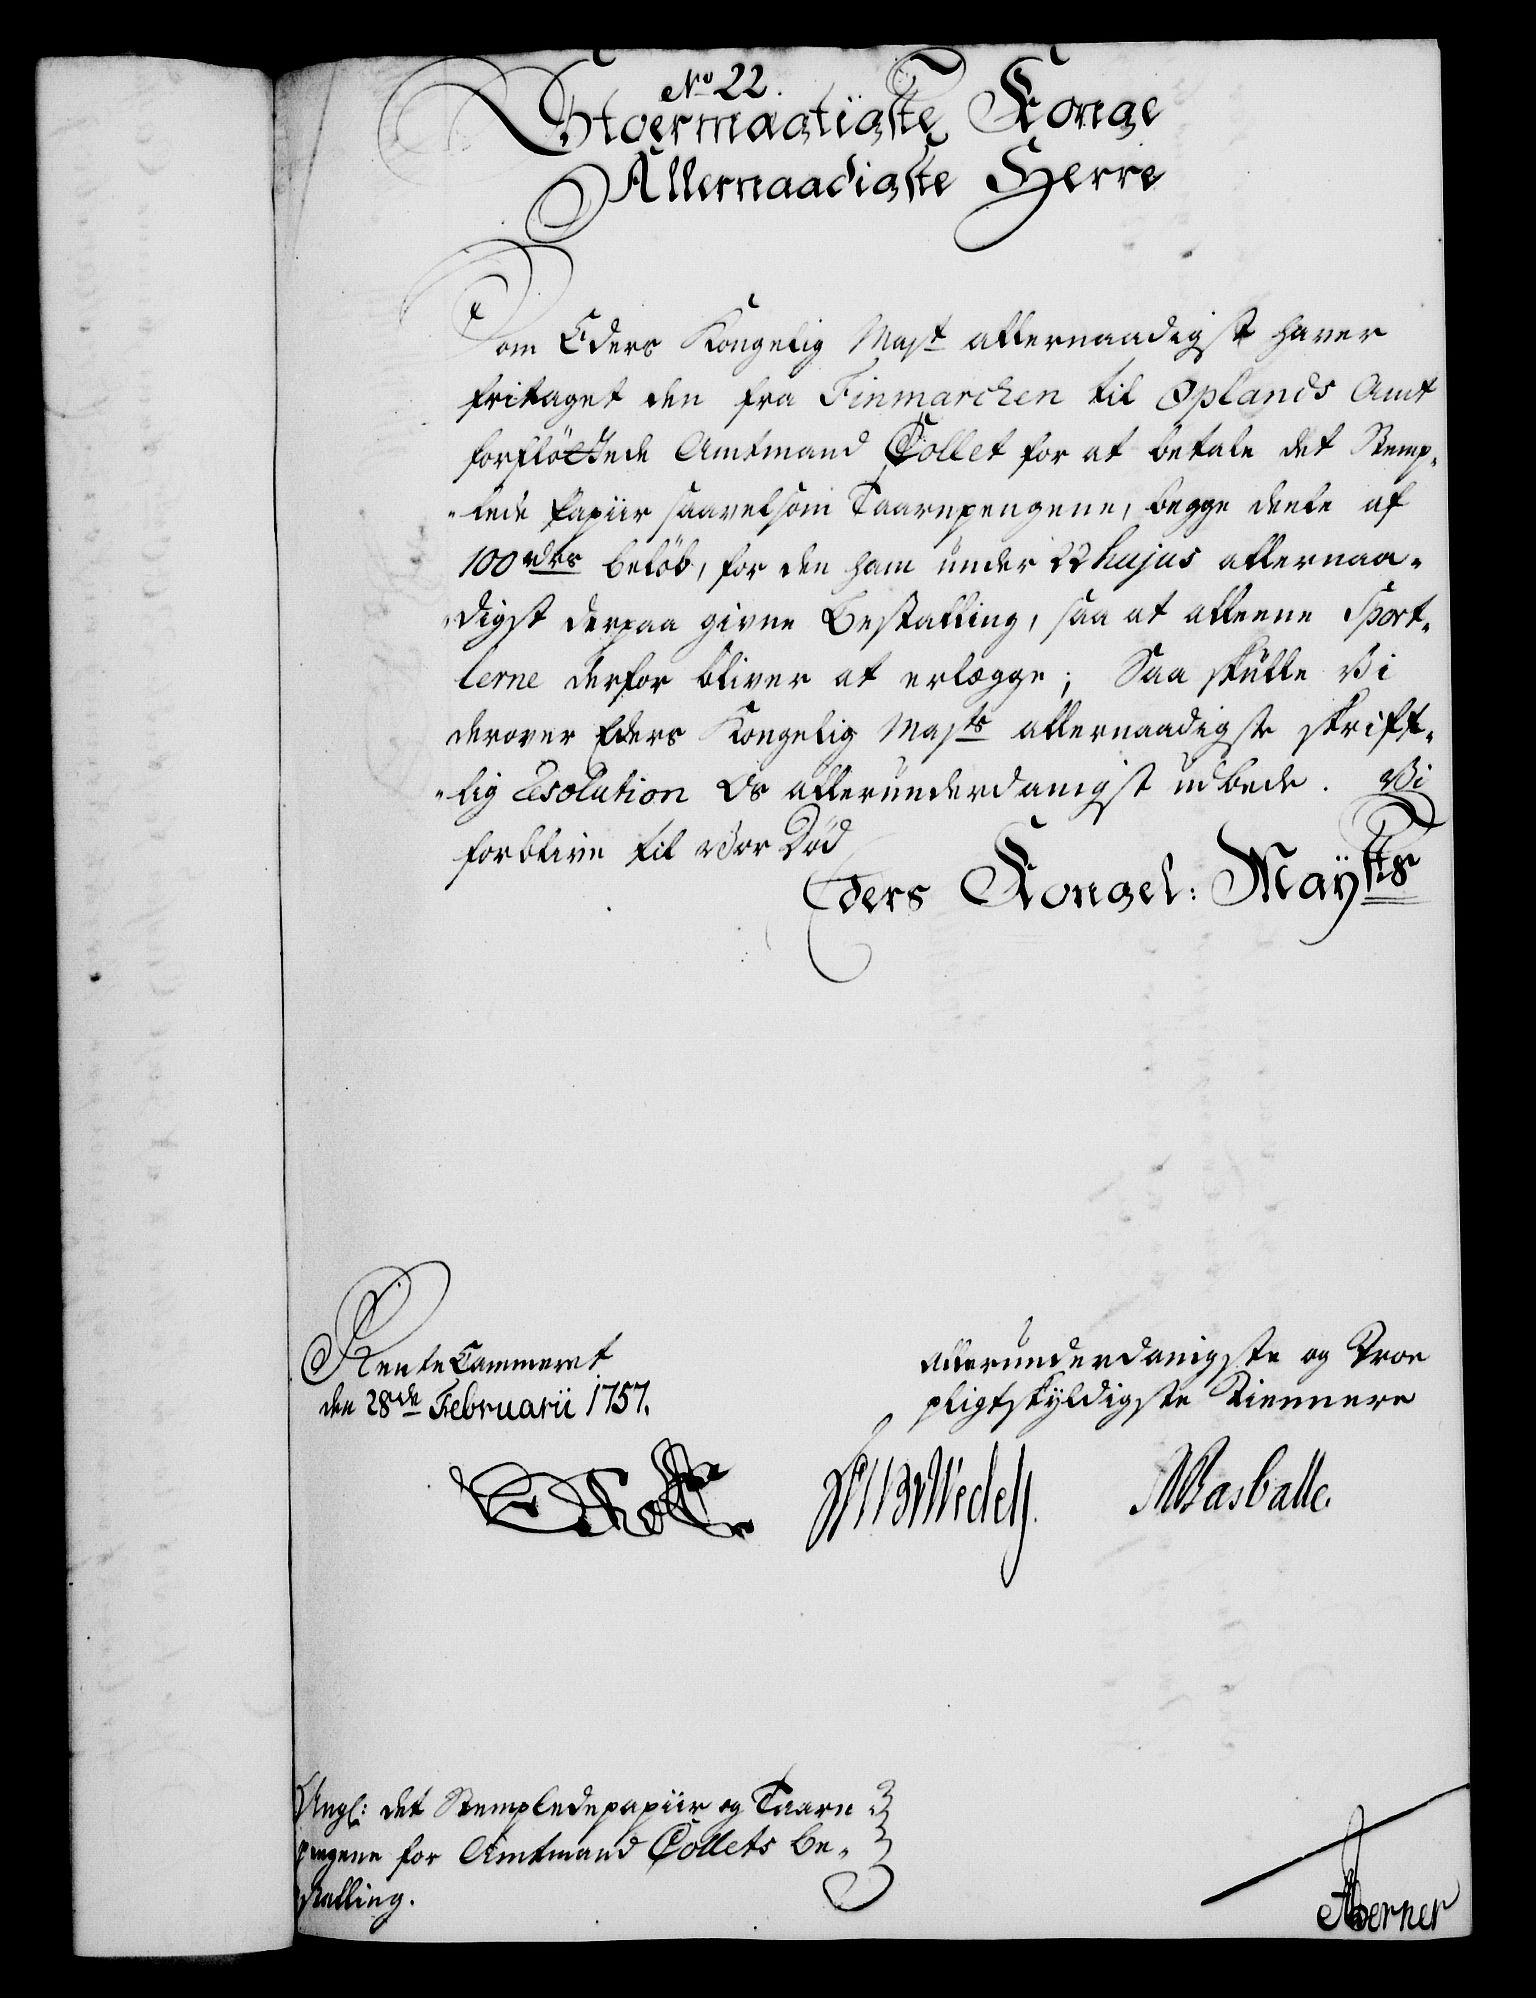 No 22.
Stoermægtigste Konge
Allernaadigste Herre
Som Eders Kongelig Majt allernaadigst haver
fritaget den fra Finmarchen til Oplands Amt
forflöttede Amtmand Collet for at betale det Stemp-
-lede Papiir saavelsom Taarnpengene, begge deele af
100 rdrs belöb, for den ham under 22 hujus allernaa-
digst derpaa givne Bestalling, saa at alleene Sport-
lerne derfor bliver at erlægge; Saa skulle Vi
derover Eders Kongelig Majts allernaadigste skrifft-
-lig Resolution os allerunderdanigst udbede. Vi
forblive til Vor Död
Eders Kongel: Mayts
RenteCammeret
den 28de Februarii 1757.
Allerunderdanigste og Troe
pligtskyldigste Tiennere
Wedell
MBasballe.
Angl: det Stempledepapiir og Taarn
pengene for Amtmand Collets Be-
stalling.
Berner